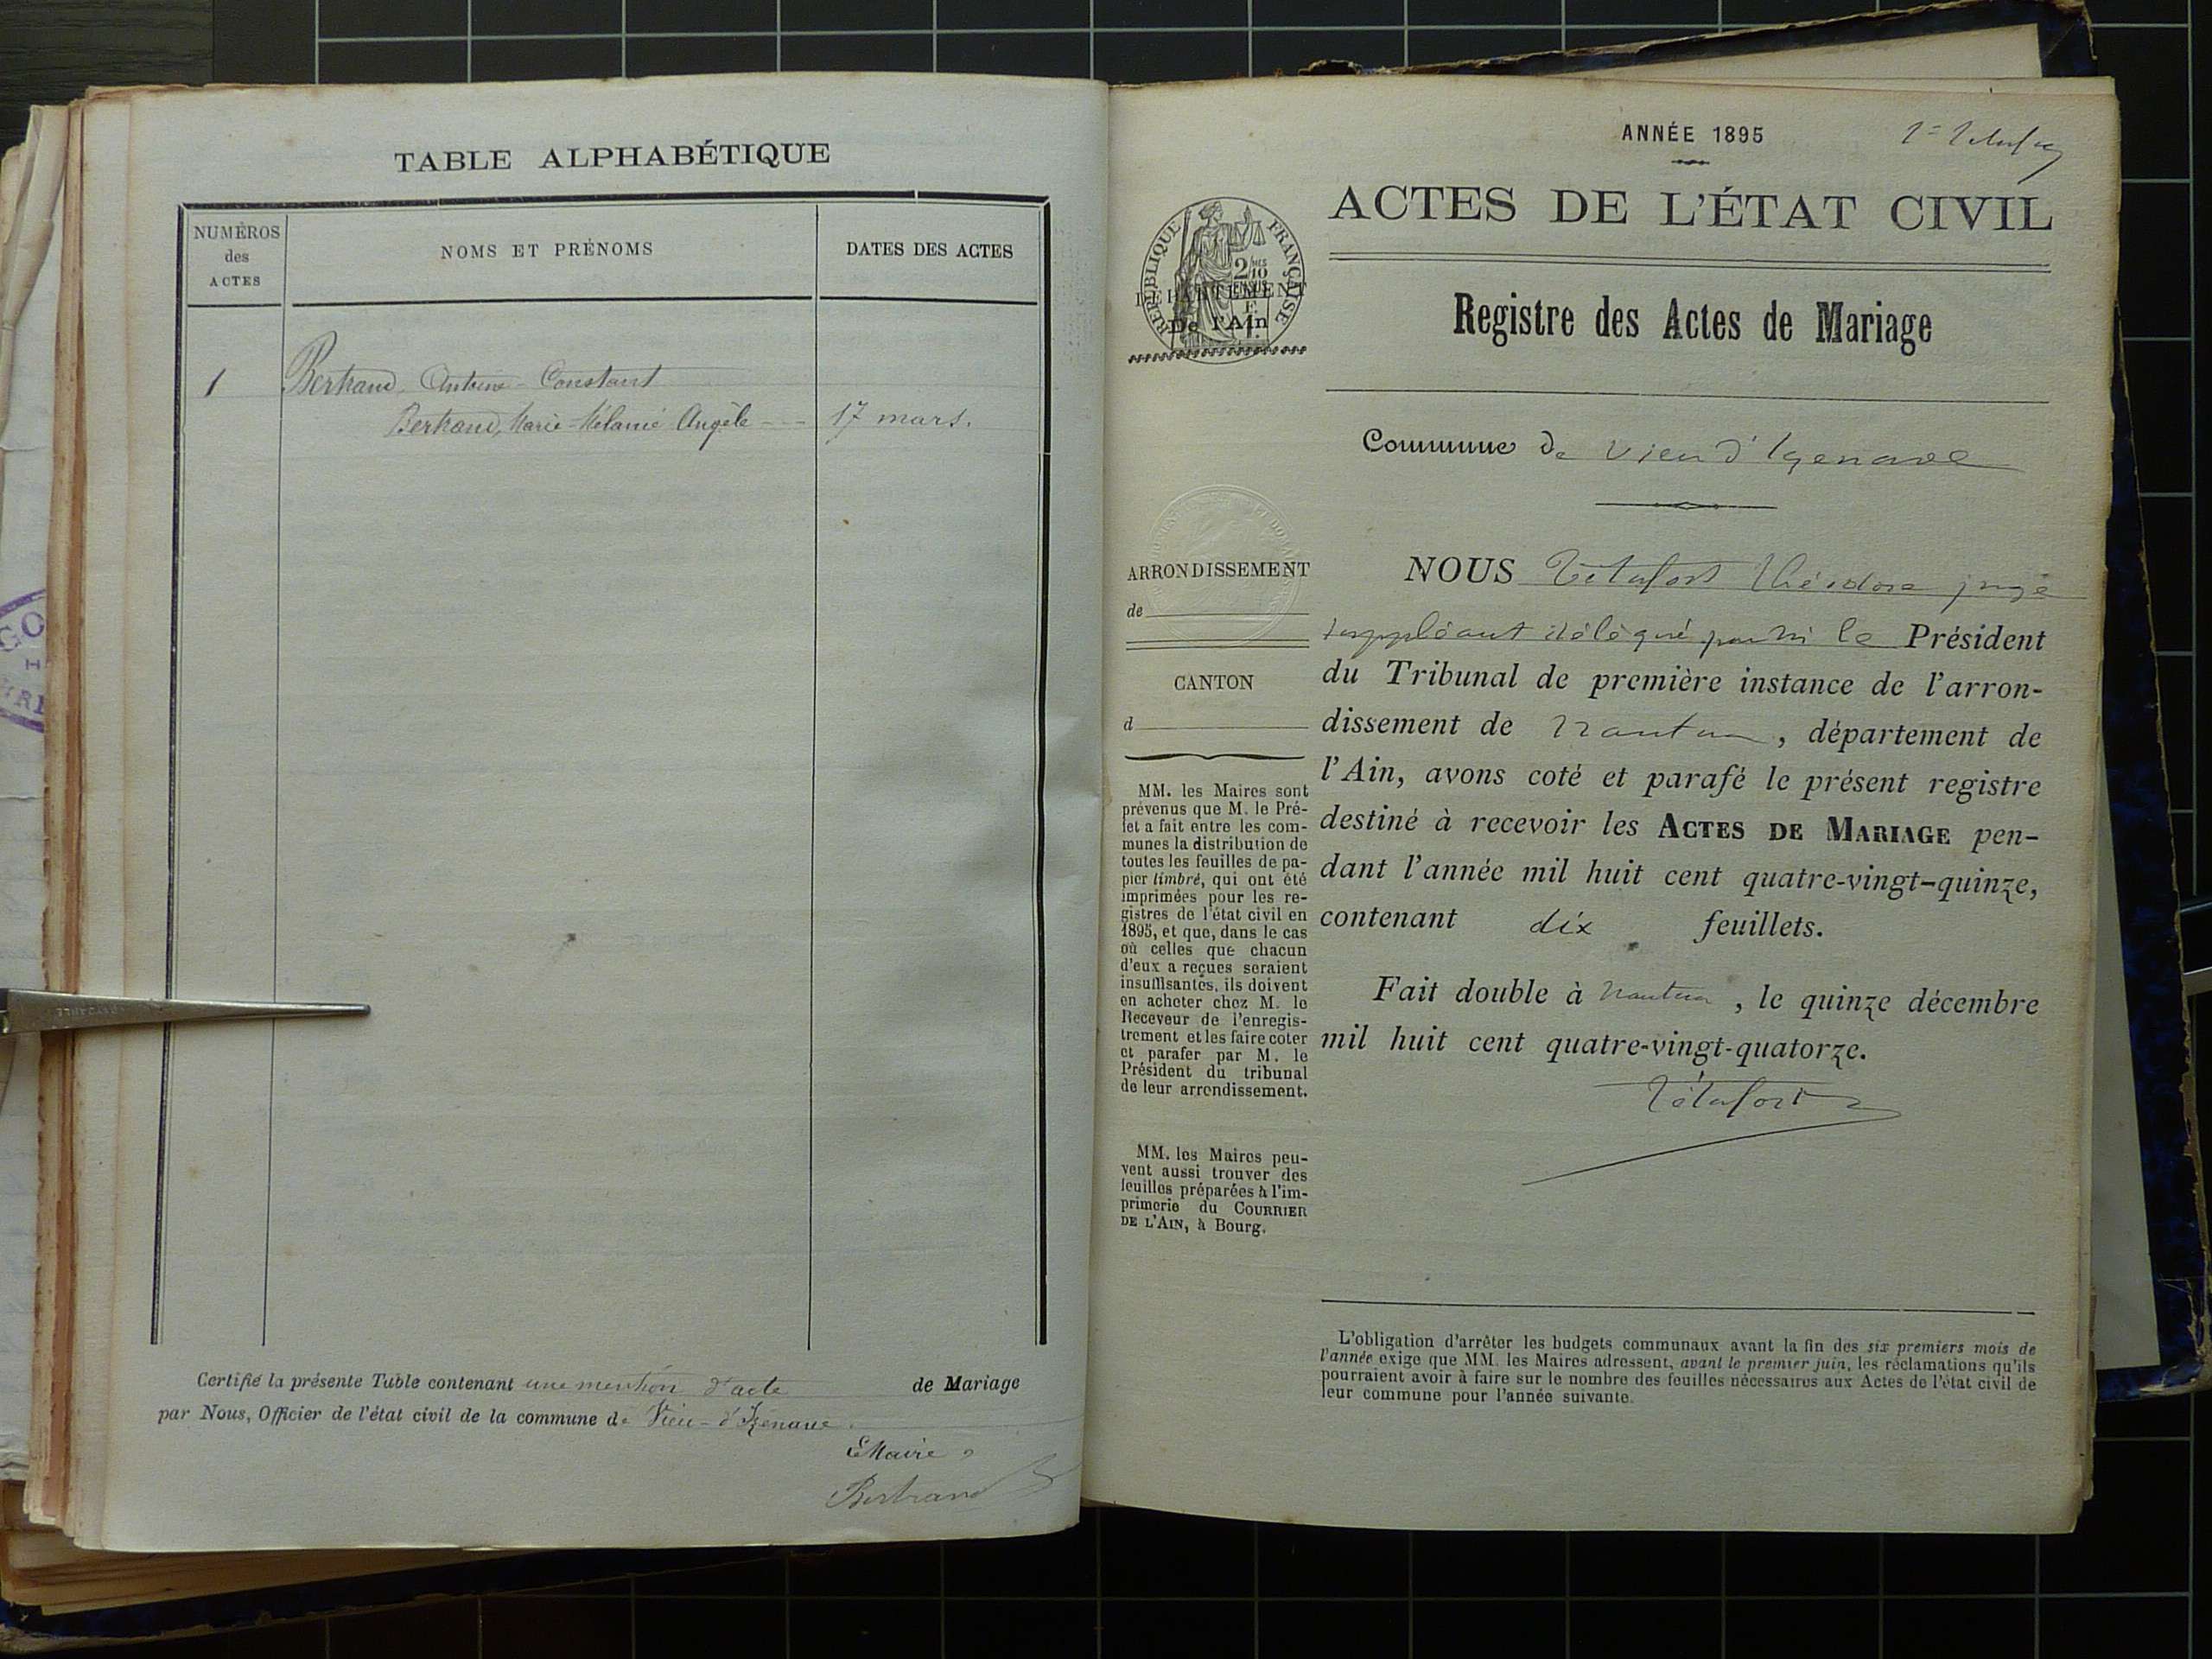 TABLE ALPHABÉTIQUE
NUMÉROS
des
ACTES
NOMS ET PRÉNOMS
DATES DES ACTES
1
Bertrand, Antoine-Constant
Bertrand, Marie-Mélanie Angèle
17 mars.
Certifié la présente Table contenant une mention d'acte de Mariage
par Nous, Officier de l'état civil de la commune de Vieu-d'Izenave.
Le Maire
Bertrand
ANNÉE 1895
ACTES DE L'ÉTAT CIVIL
RÉPUBLIQUE FRANÇAISE
2/10
DÉPARTEMENT
De l'Ain
Registre des Actes de Mariage
Commune de Vieu d'Izenave
ARRONDISSEMENT
de
CANTON
d
MM. les Maires sont
prévenus que M. le Pré-
fet a fait entre les com-
munes la distribution de
toutes les feuilles de pa-
pier timbré, qui ont été
imprimées pour les re-
gistres de l'état civil en
1895, et que, dans le cas
où celles que chacun
d'eux a reçues seraient
insuffisantes, ils doivent
en acheter chez M. le
Receveur de l'enregis-
trement et les faire coter
et parafer par M. le
Président du tribunal
de leur arrondissement.
MM. les Maires peu-
vent aussi trouver des
feuilles préparées à l'im-
primerie du COURRIER
DE L'AIN, à Bourg.
NOUS Tétafort Théodore juge
suppléant délégué par Mr le Président
du Tribunal de première instance de l'arron-
dissement de Nantua, département de
l'Ain, avons coté et parafé le présent registre
destiné à recevoir les ACTES DE MARIAGE pen-
dant l'année mil huit cent quatre-vingt-quinze,
contenant dix feuillets.
Fait double à Nantua, le quinze décembre
mil huit cent quatre-vingt-quatorze.
Tétafort
L'obligation d'arrêter les budgets communaux avant la fin des six premiers mois de
l'année exige que MM. les Maires adressent, avant le premier juin, les réclamations qu'ils
pourraient avoir à faire sur le nombre des feuilles nécessaires aux Actes de l'état civil de
leur commune pour l'année suivante.